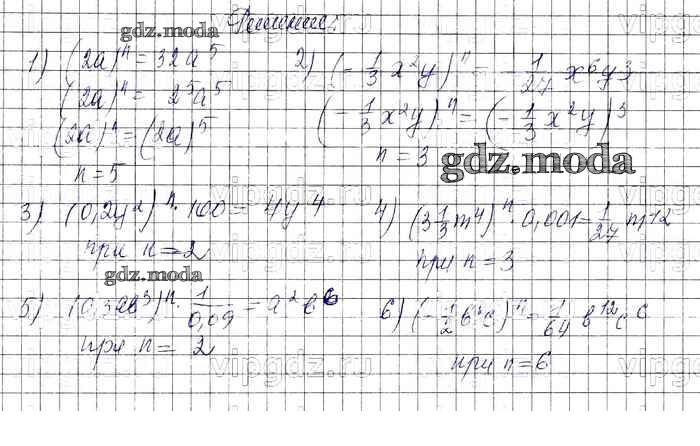 Решение:
gdz.moda
1) (2a)ⁿ = 32a⁵
(2a)ⁿ = 2⁵a⁵
(2a)ⁿ = (2a)⁵
n = 5
2) (-1/3 x²y)ⁿ = -1/27 x⁶y³
(-1/3 x²y)ⁿ = (-1/3 x²y)³
n = 3
gdz.moda
3) (0,2y²)ⁿ · 100 = 4y⁴
при n = 2
gdz.moda
4) (3 1/3 m⁴)ⁿ · 0,001 = 1/27 m12
при n = 3
5) (0,3ab³)ⁿ · 1/0,09 = a²b⁶
при n = 2
6) (-1/2 b²c)ⁿ = 1/64 b¹²c⁶
при n = 6
vipgdz.ru
vipgdz.ru
vipgdz.ru
vipgdz.ru